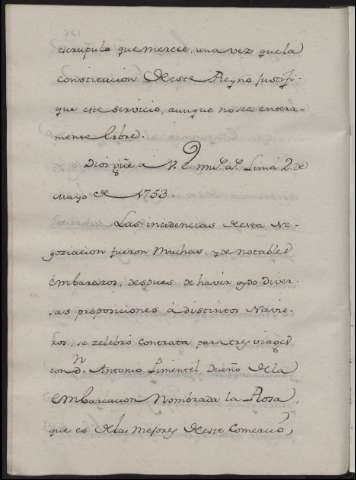 escrupulo que merece, una vez que la
constitucion de este Reyno justifi-
que este servicio, aunque no sea entera-
mente libre.
Dios gue a V. E. ms. as. Lima 2 de
Mayo de 1753
Las incidencias de esta Ne-
gociacion fueron muchas, y de notables
embarazos, despues de haver oydo diver-
sas proposiciones á distintos Navie-
ros, se zelebró contrata para tres viages
con Dn. Antonio Pimentel Dueño de la
embarcacion Nombrada la Rosa,
que es de las mejores de este Comercio,